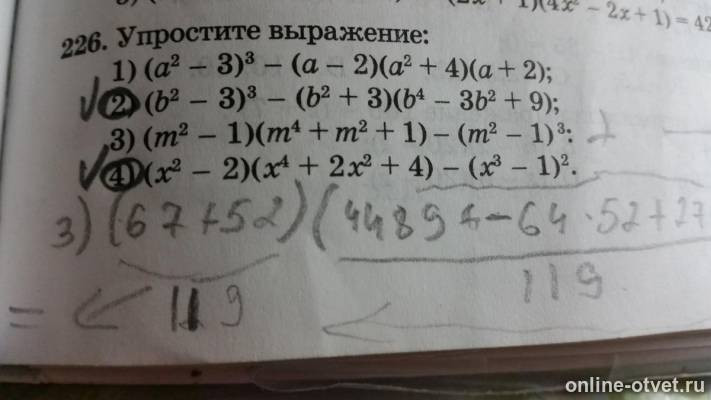 1)(4x² − 2x + 1) = 42
226. Упростите выражение:
1) (a² − 3)³ − (a − 2)(a² + 4)(a + 2);
2) (b² − 3)³ − (b² + 3)(b⁴ − 3b² + 9);
3) (m² − 1)(m⁴ + m² + 1) − (m² − 1)³:
4) (x² − 2)(x⁴ + 2x² + 4) − (x³ − 1)².
3) (67+52)(4489 − 64·52+27
= 119 119
online-otvet.ru